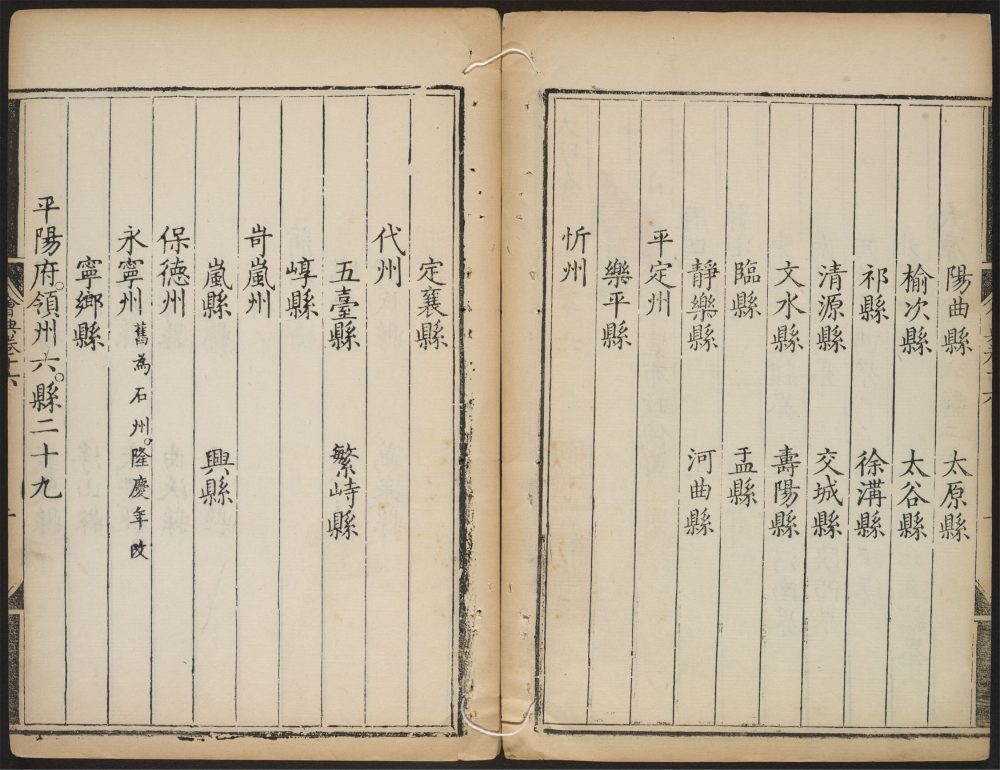 陽曲縣 太原縣
榆次縣 太谷縣
祁縣 徐溝縣
清源縣 交城縣
文水縣 壽陽縣
臨縣 盂縣
靜樂縣 河曲縣
平定州
樂平縣
忻州
定襄縣
代州
五臺縣 繁峙縣
崞縣
岢嵐州
嵐縣 興縣
保德州
永寧州 舊為石州。隆慶年改
寧鄉縣
平陽府。領州六。縣二十九